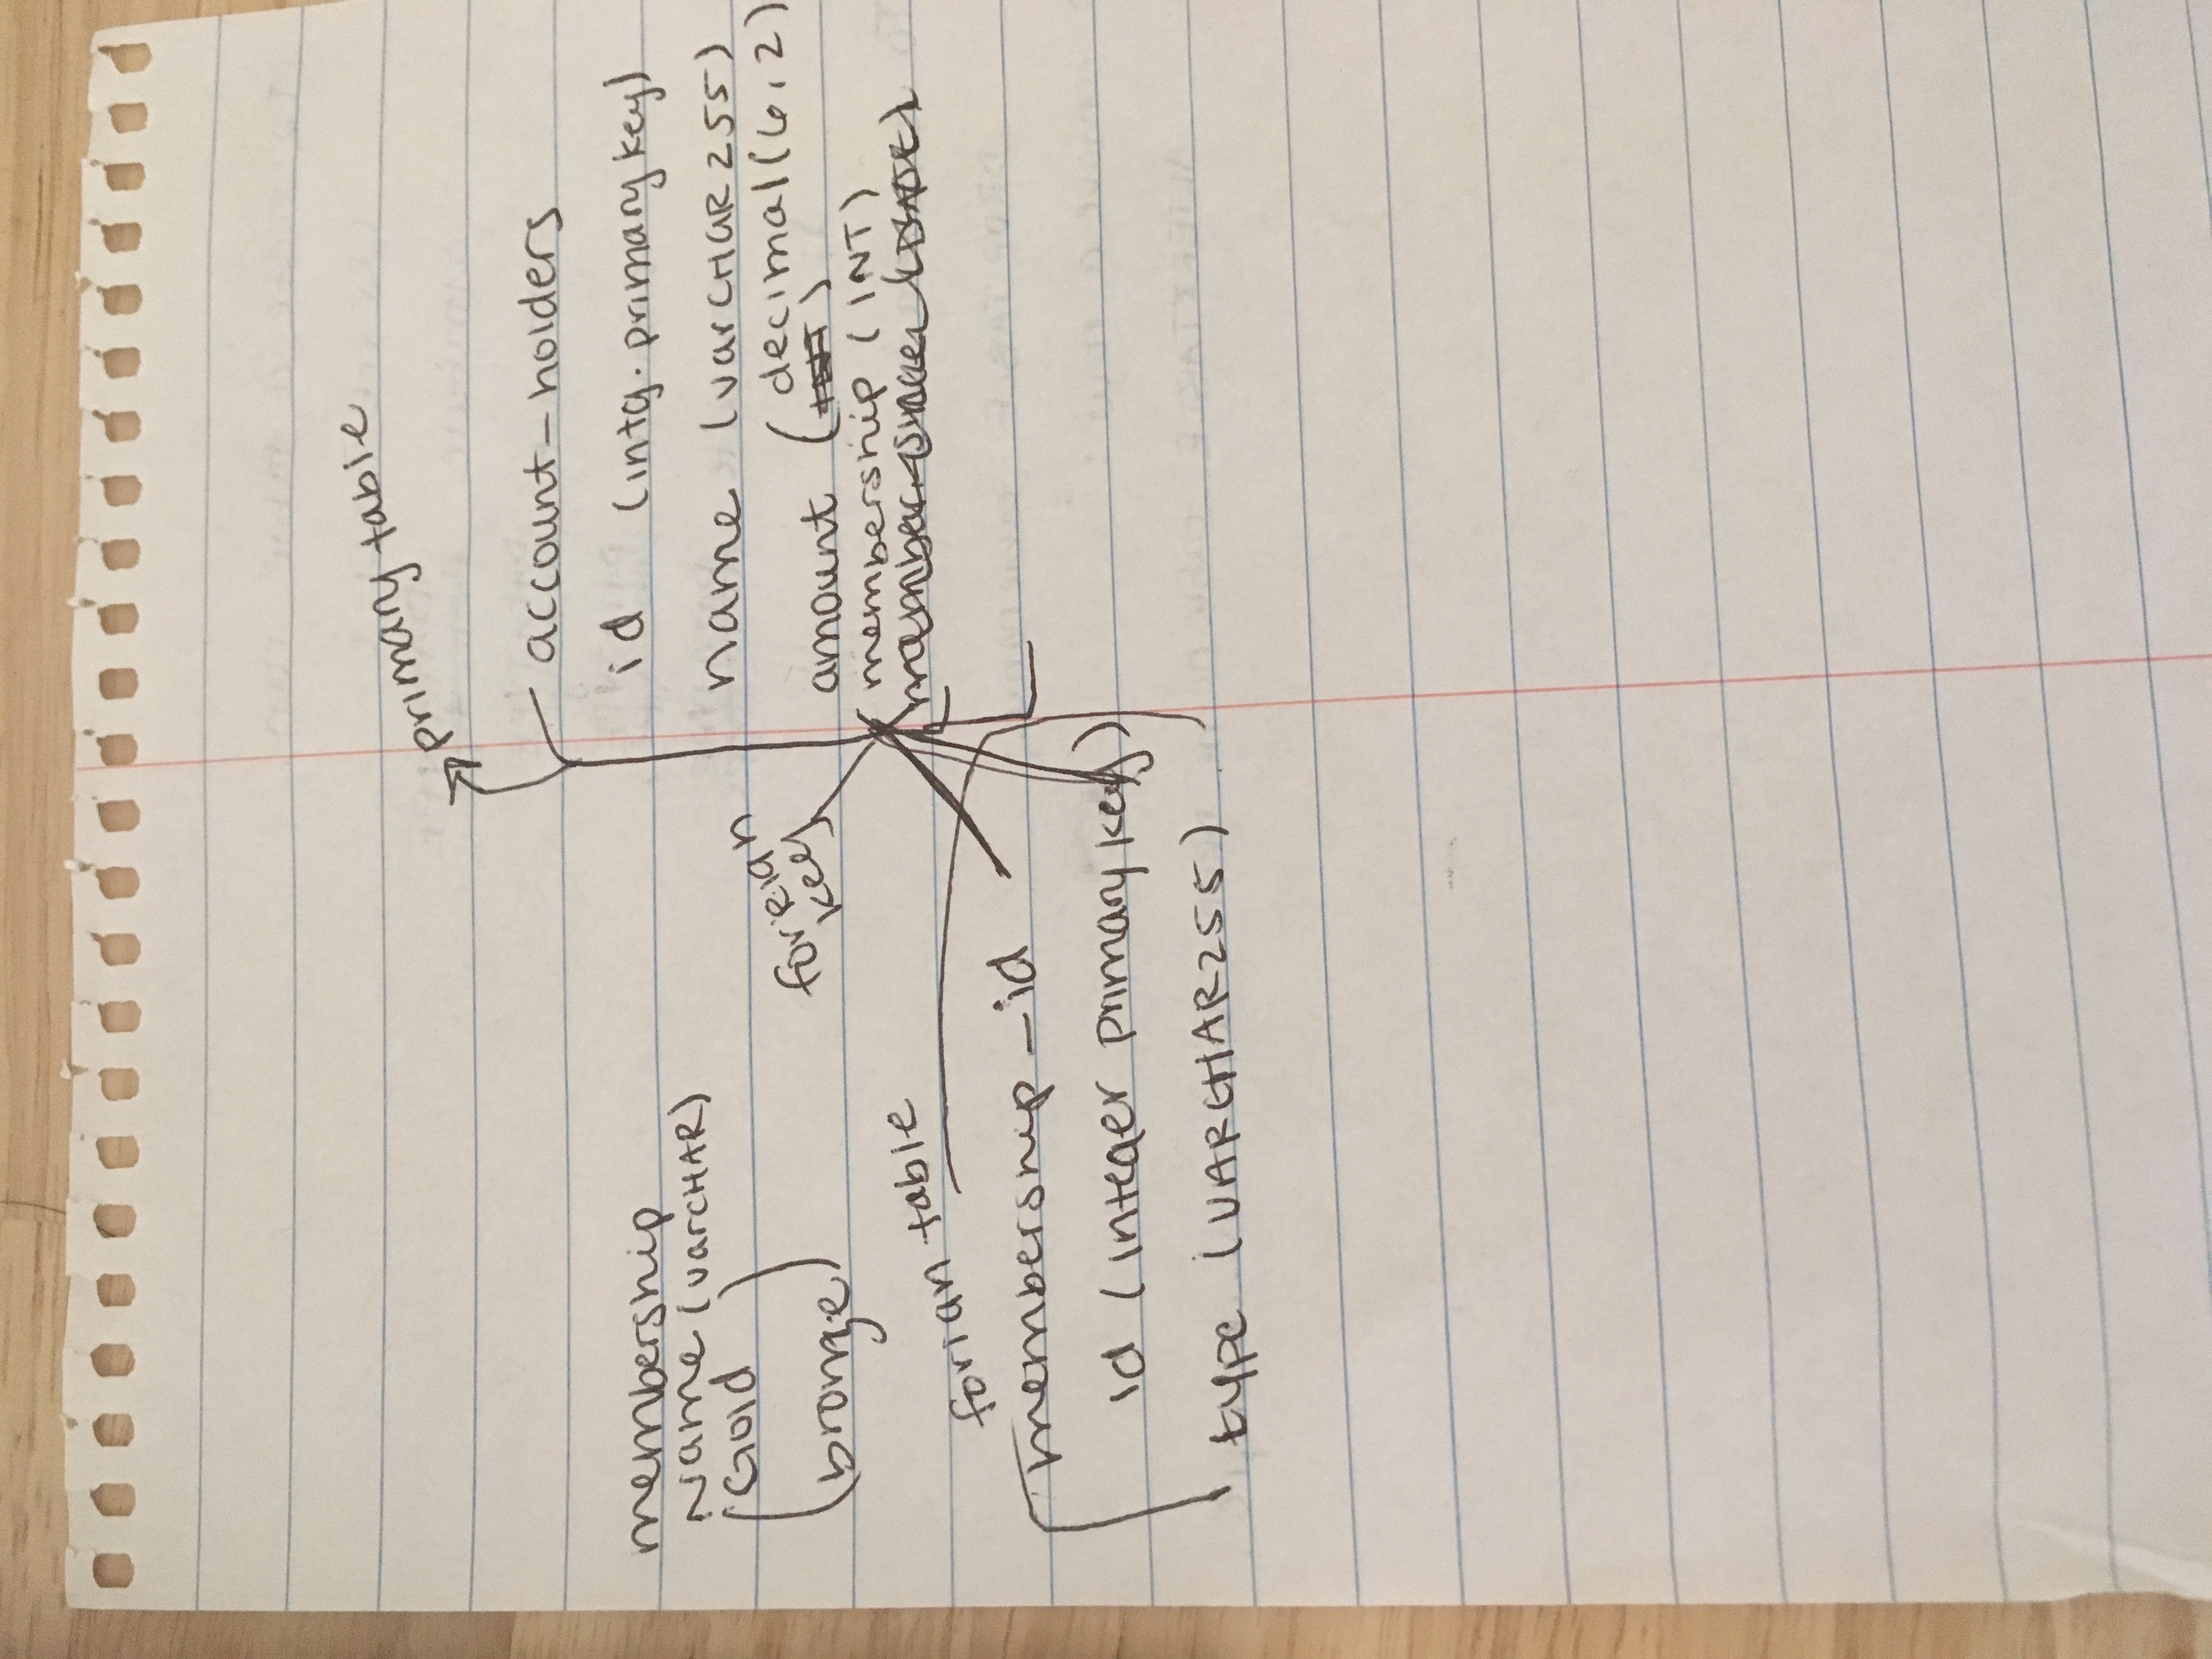 primary table
account-holders
id (intg. primary key)
name (varCHAR 255)
decimal(6,2)
amount (INT)
membership (INT)
member-since (DATE)
membership
Name (varCHAR)
(Gold
bronze)
foreign
key
forian table
membership-id
id (integer primary key)
type (VARCHAR255)